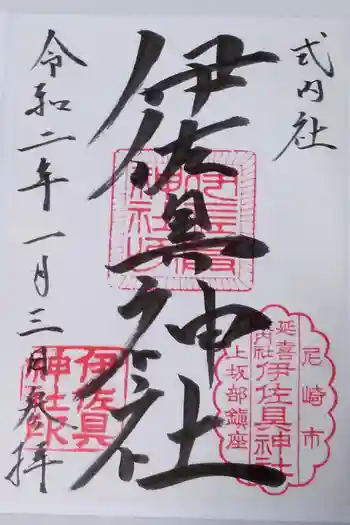 式内社
伊佐具神社
令和二年一月三日奉拝
尼崎市
延喜式内社
伊佐具神社
上坂部鎮座
伊佐具
神社